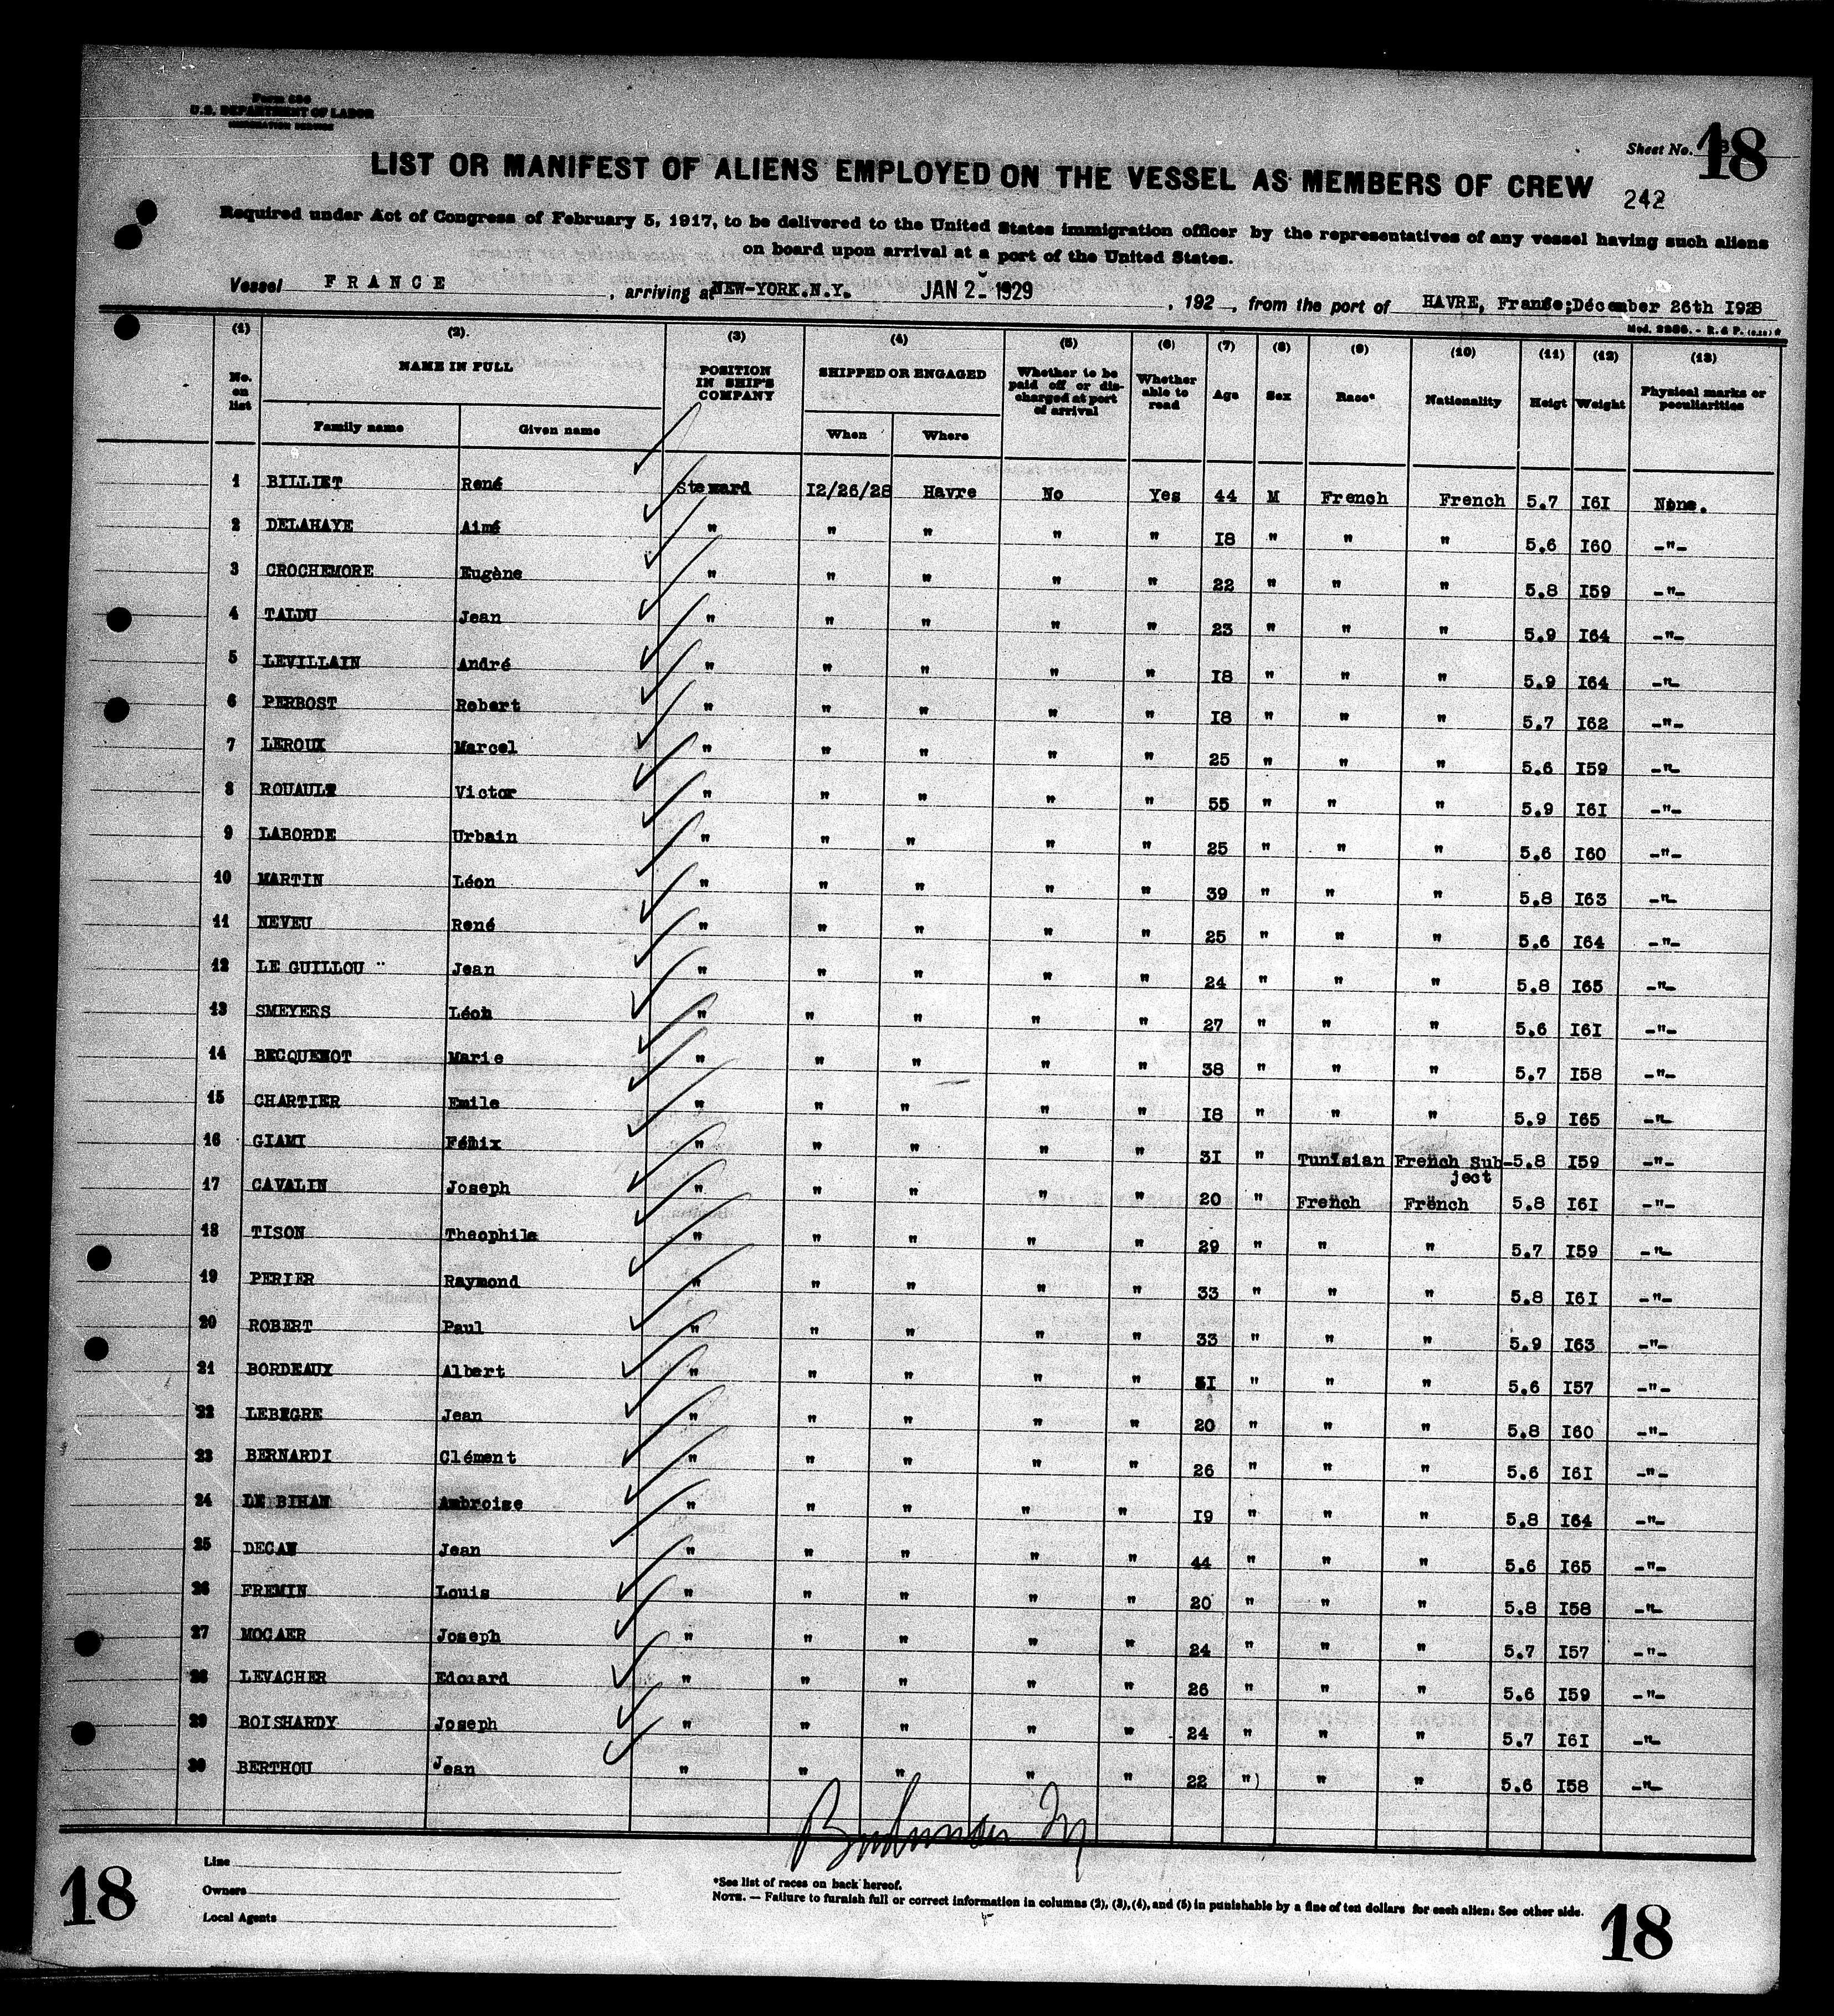 Form 686
U.S. DEPARTMENT OF LABOR
IMMIGRATION SERVICE
Sheet No. 18
LIST OR MANIFEST OF ALIENS EMPLOYED ON THE VESSEL AS MEMBERS OF CREW
242
Required under Act of Congress of February 5, 1917, to be delivered to the United States immigration officer by the representatives of any vessel having such aliens
on board upon arrival at a port of the United States.
Vessel FRANCE , arriving at NEW-YORK.N.Y. JAN 2- 1929 , 192 , from the port of HAVRE, France;Décember 26th I928
(1) (2). (3) (4) (5) (6) (7) (8) (9) (10) (11) (12) (13)
No. on list NAME IN FULL POSITION IN SHIP'S COMPANY SHIPPED OR ENGAGED Whether to be paid off or discharged at port of arrival Whether able to read Age Sex Race* Nationality Heigt Weight Physical marks or peculiarities
Family name Given name When Where
1 BILLIET René Steward I2/26/28 Havre No Yes 44 M French French 5.7 I6I None.
2 DELAHAYE Aimé " " " " " I8 " " " 5.6 I60 -"-
3 CROCHEMORE Eugène " " " " " 22 " " " 5.8 I59 -"-
4 TALDU Jean " " " " " 23 " " " 5.9 I64 -"-
5 LEVILLAIN André " " " " " I8 " " " 5.9 I64 -"-
6 PERBOST Robert " " " " " I8 " " " 5.7 I62 -"-
7 LEROUX Marcel " " " " " 25 " " " 5.6 I59 -"-
8 ROUAULT Victor " " " " " 55 " " " 5.9 I6I -"-
9 LABORDE Urbain " " " " " 25 " " " 5.6 I60 -"-
10 MARTIN Léon " " " " " 39 " " " 5.8 I63 -"-
11 NEVEU René " " " " " 25 " " " 5.6 I64 -"-
12 LE GUILLOU " Jean " " " " " 24 " " " 5.8 I65 -"-
13 SMEYERS Léon " " " " " 27 " " " 5.6 I6I -"-
14 BECQUEMOT Marie " " " " " 38 " " " 5.7 I58 -"-
15 CHARTIER Emile " " " " " I8 " " " 5.9 I65 -"-
16 GIAMI Félix " " " " " 3I " Tunisian French Sub- 5.8 I59 -"-
ject
17 CAVALIN Joseph " " " " " 20 " French French 5.8 I6I -"-
18 TISON Theophile " " " " " 29 " " " 5.7 I59 -"-
19 PERIER Raymond " " " " " 33 " " " 5.8 I6I -"-
20 ROBERT Paul " " " " " 33 " " " 5.9 I63 -"-
21 BORDEAUX Albert " " " " " 3I " " " 5.6 I57 -"-
22 LEBEGRE Jean " " " " " 20 " " " 5.8 I60 -"-
23 BERNARDI Clément " " " " " 26 " " " 5.6 I6I -"-
24 LE BIHAN Ambroise " " " " " I9 " " " 5.8 I64 -"-
25 DECAN Jean " " " " " 44 " " " 5.6 I65 -"-
26 FREMIN Louis " " " " " 20 " " " 5.8 I58 -"-
27 MOCAER Joseph " " " " " 24 " " " 5.7 I57 -"-
28 LEVACHER Edouard " " " " " 26 " " " 5.6 I59 -"-
29 BOISHARDY Joseph " " " " " 24 " " " 5.7 I6I -"-
30 BERTHOU Jean " " " " " 22 " " " 5.6 I58 -"-
Line
Owners
Local Agents
*See list of races on back hereof.
NOTE. — Failure to furnish full or correct information in columns (2), (3), (4), and (5) in punishable by a fine of ten dollars for each alien. See other side.
18
18